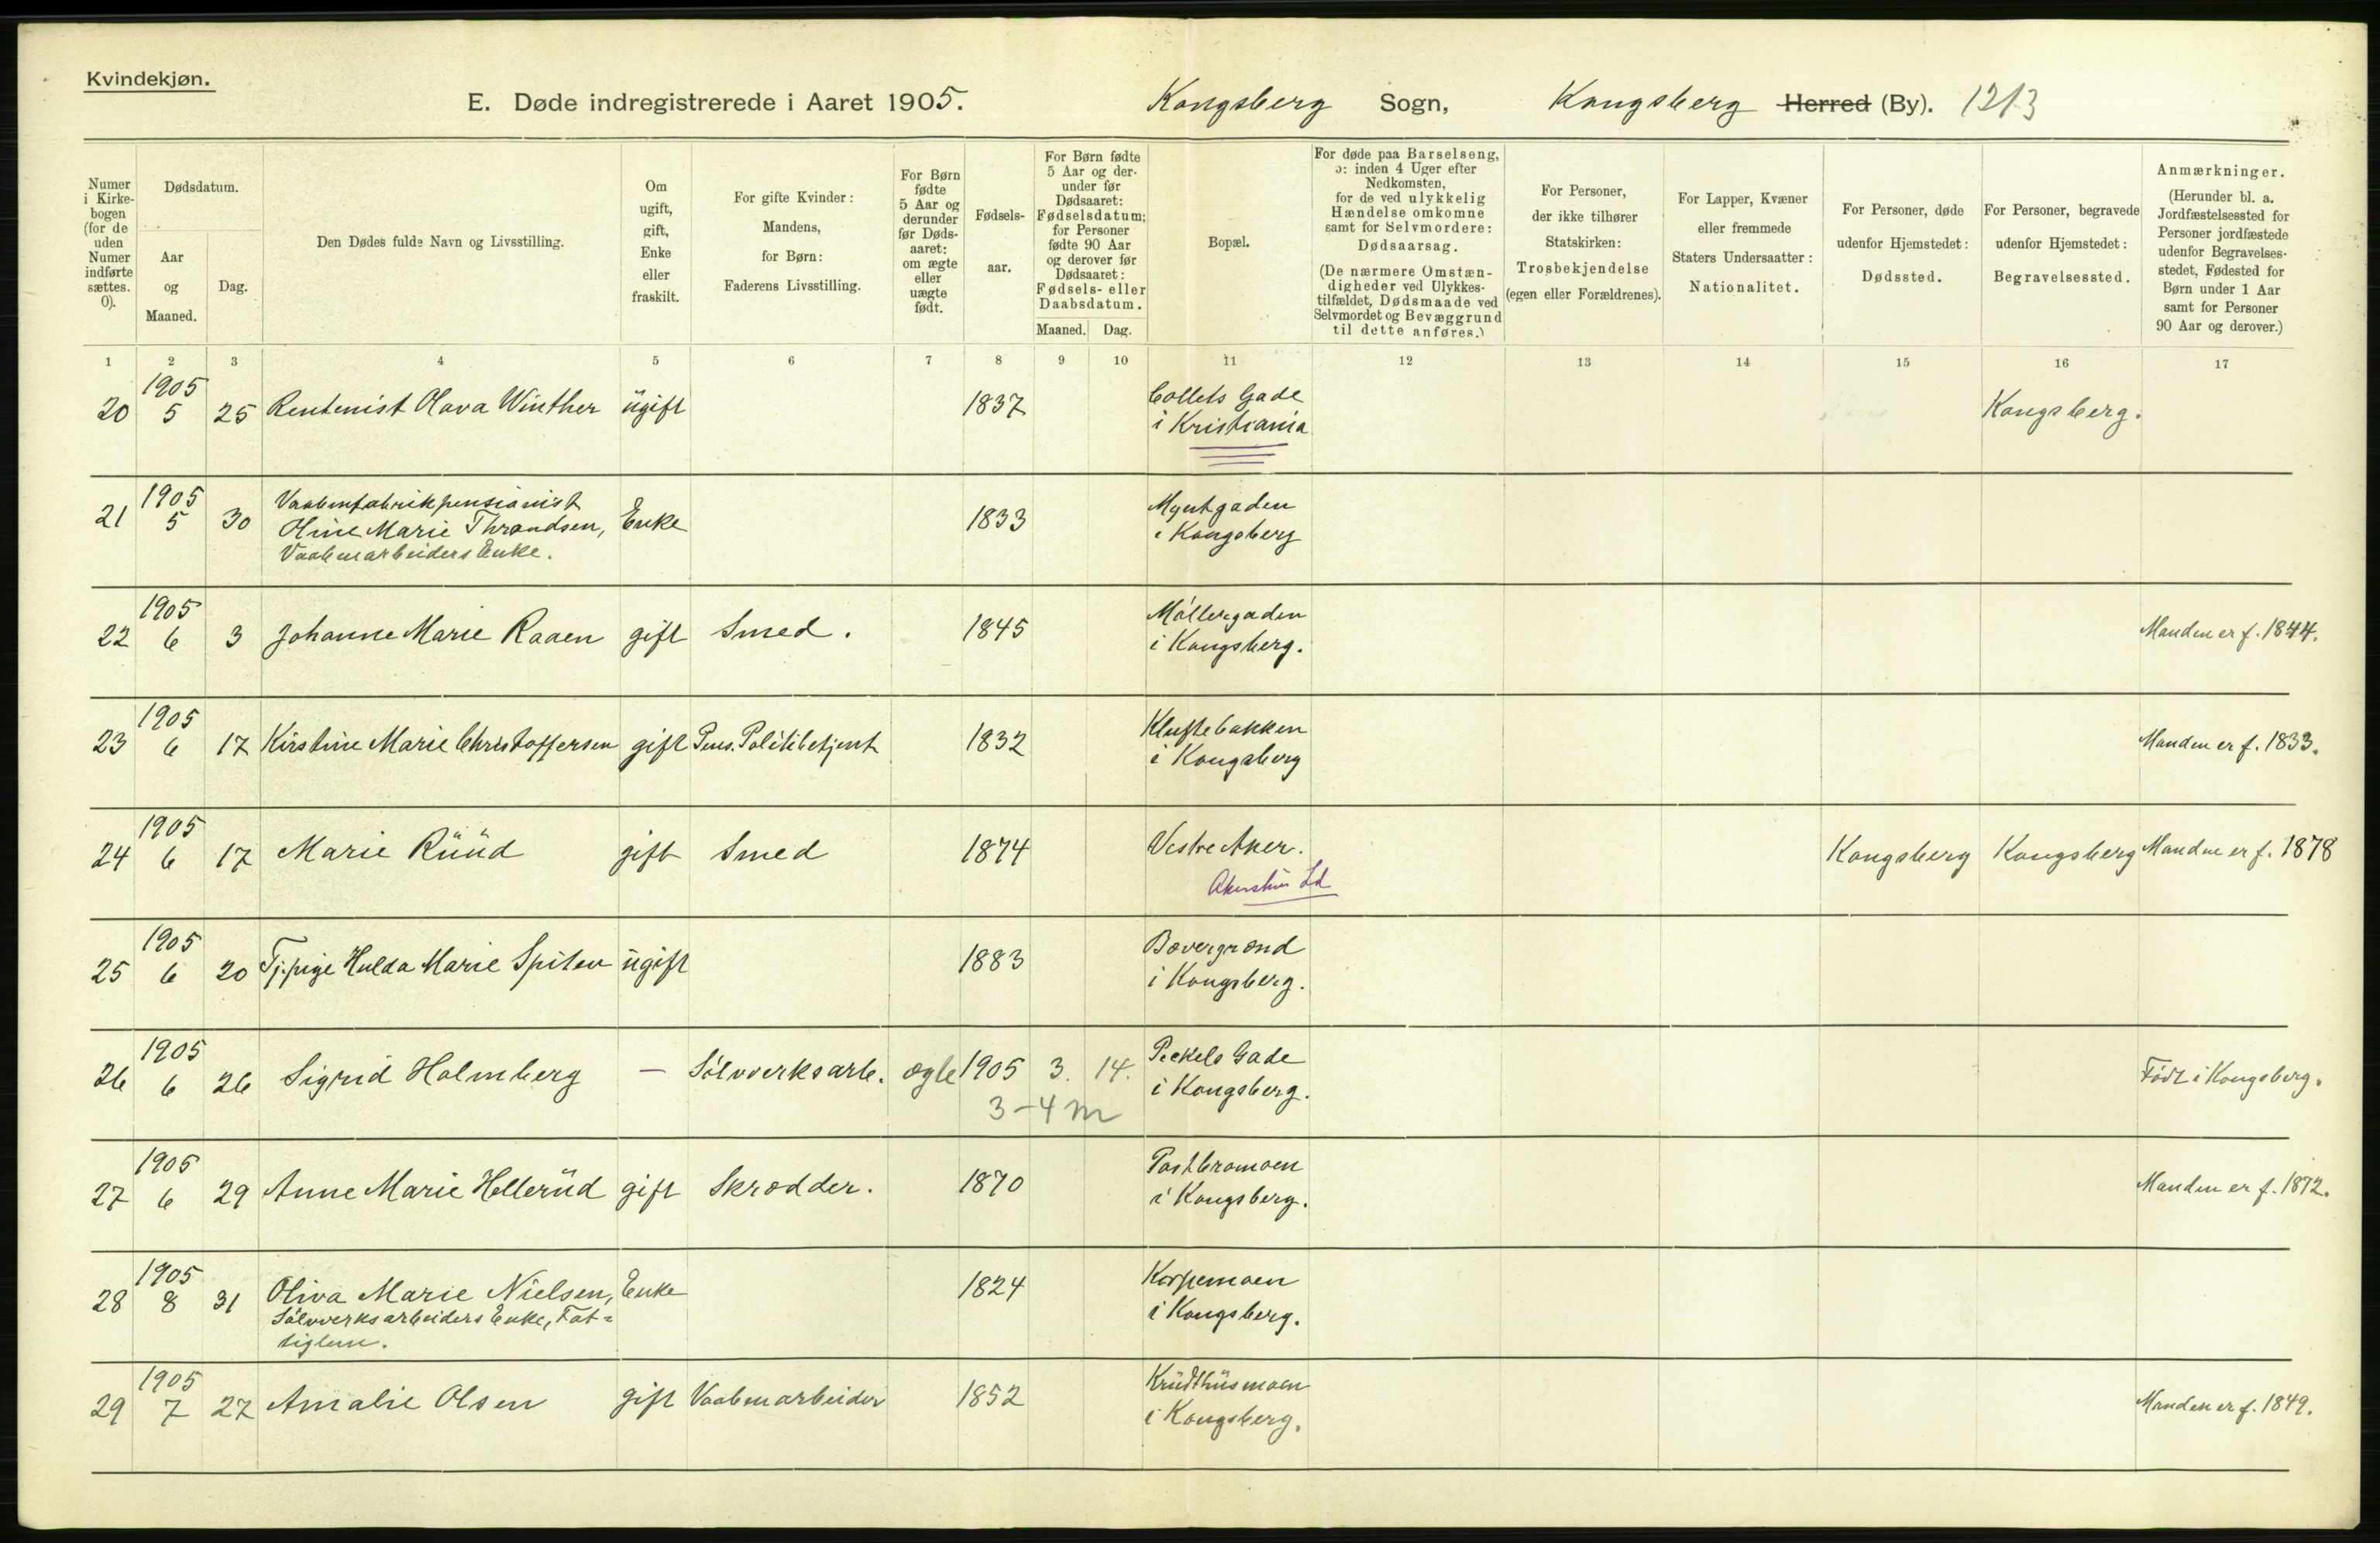 Kvindekjøn.
E. Døde indregistrerede i Aaret 1905. Kongsberg Sogn, Kongsberg Herred (By). 1213
Numer i Kirkebogen (for de uden Numer indførte sættes. 0).
Dødsdatum.
Aar og Maaned.
Dag.
Den Dødes fulde Navn og Livsstilling.
Om ugift, gift, Enke eller fraskilt.
For gifte Kvinder: Mandens, for Børn: Faderens Livsstilling.
For Børn fødte 5 Aar og derunder før Dødsaaret: om ægte eller uægte født.
Fødselsaar.
For Børn fødte 5 Aar og derunder før Dødsaaret: Fødselsdatum; for Personer fødte 90 Aar og derover før Dødsaaret: Fødsels- eller Daabsdatum.
Maaned. Dag.
Bopæl.
For døde paa Barselseng, ɔ: inden 4 Uger efter Nedkomsten, for de ved ulykkelig Hændelse omkomne samt for Selvmordere: Dødsaarsag.
(De nærmere Omstændigheder ved Ulykkestilfældet, Dødsmaade ved Selvmordet og Bevæggrund til dette anføres.)
For Personer, der ikke tilhører Statskirken: Trosbekjendelse (egen eller Forældrenes).
For Lapper, Kvæner eller fremmede Staters Undersaatter: Nationalitet.
For Personer, døde udenfor Hjemstedet: Dødssted.
For Personer, begravede udenfor Hjemstedet: Begravelsessted.
Anmærkninger.
(Herunder bl. a. Jordfæstelsessted for Personer jordfæstede udenfor Begravelsesstedet, Fødested for Børn under 1 Aar samt for Personer 90 Aar og derover.)
1 2 3 4 5 6 7 8 9 10 11 12 13 14 15 16 17
1905 Collets Gade
20 5 25 Rentenist Olava Winther ugift 1837 i Kristiania Kongsberg.
1905 Vaabenfabrikpensionist Myntgaden
21 5 30 Oline Marie Thrandsen, Enke 1833 i Kongsberg
Vaabenarbeiders Enke.
1905 Møllergaden
22 6 3 Johanne Marie Raaen gift Smed. 1845 i Kongsberg. Manden er f. 1844.
1905 Kluftebakken
23 6 17 Kirstine Marie Christoffersen gift Pens. Politibetjent 1832 i Kongsberg Manden er f. 1833.
1905
24 6 17 Marie Ruud gift Smed 1874 Vestre Aker. Kongsberg Kongsberg Manden er f. 1878
Akershus
1905 Bævergrænd
25 6 20 Tj.pige Hulda Marie Spiten ugift 1883 i Kongsberg.
1905 Peckels Gade
26 6 26 Sigrid Holmberg — Sølvverksarb. ægte 1905 3. 14. i Kongsberg. Født i Kongsberg.
3-4 m
1905 Postbromoen
27 6 29 Anne Marie Hellerud gift Skrædder. 1870 i Kongsberg. Manden er f. 1872.
1905 Korpemoen
28 8 31 Oliva Marie Nielsen, Enke 1824 i Kongsberg.
Sølvverksarbeiders Enke, Fat=
tiglem.
1905 Krudthusmoen
29 7 27 Amalie Olsen gift Vaabenarbeider 1852 i Kongsberg. Manden er f. 1849.